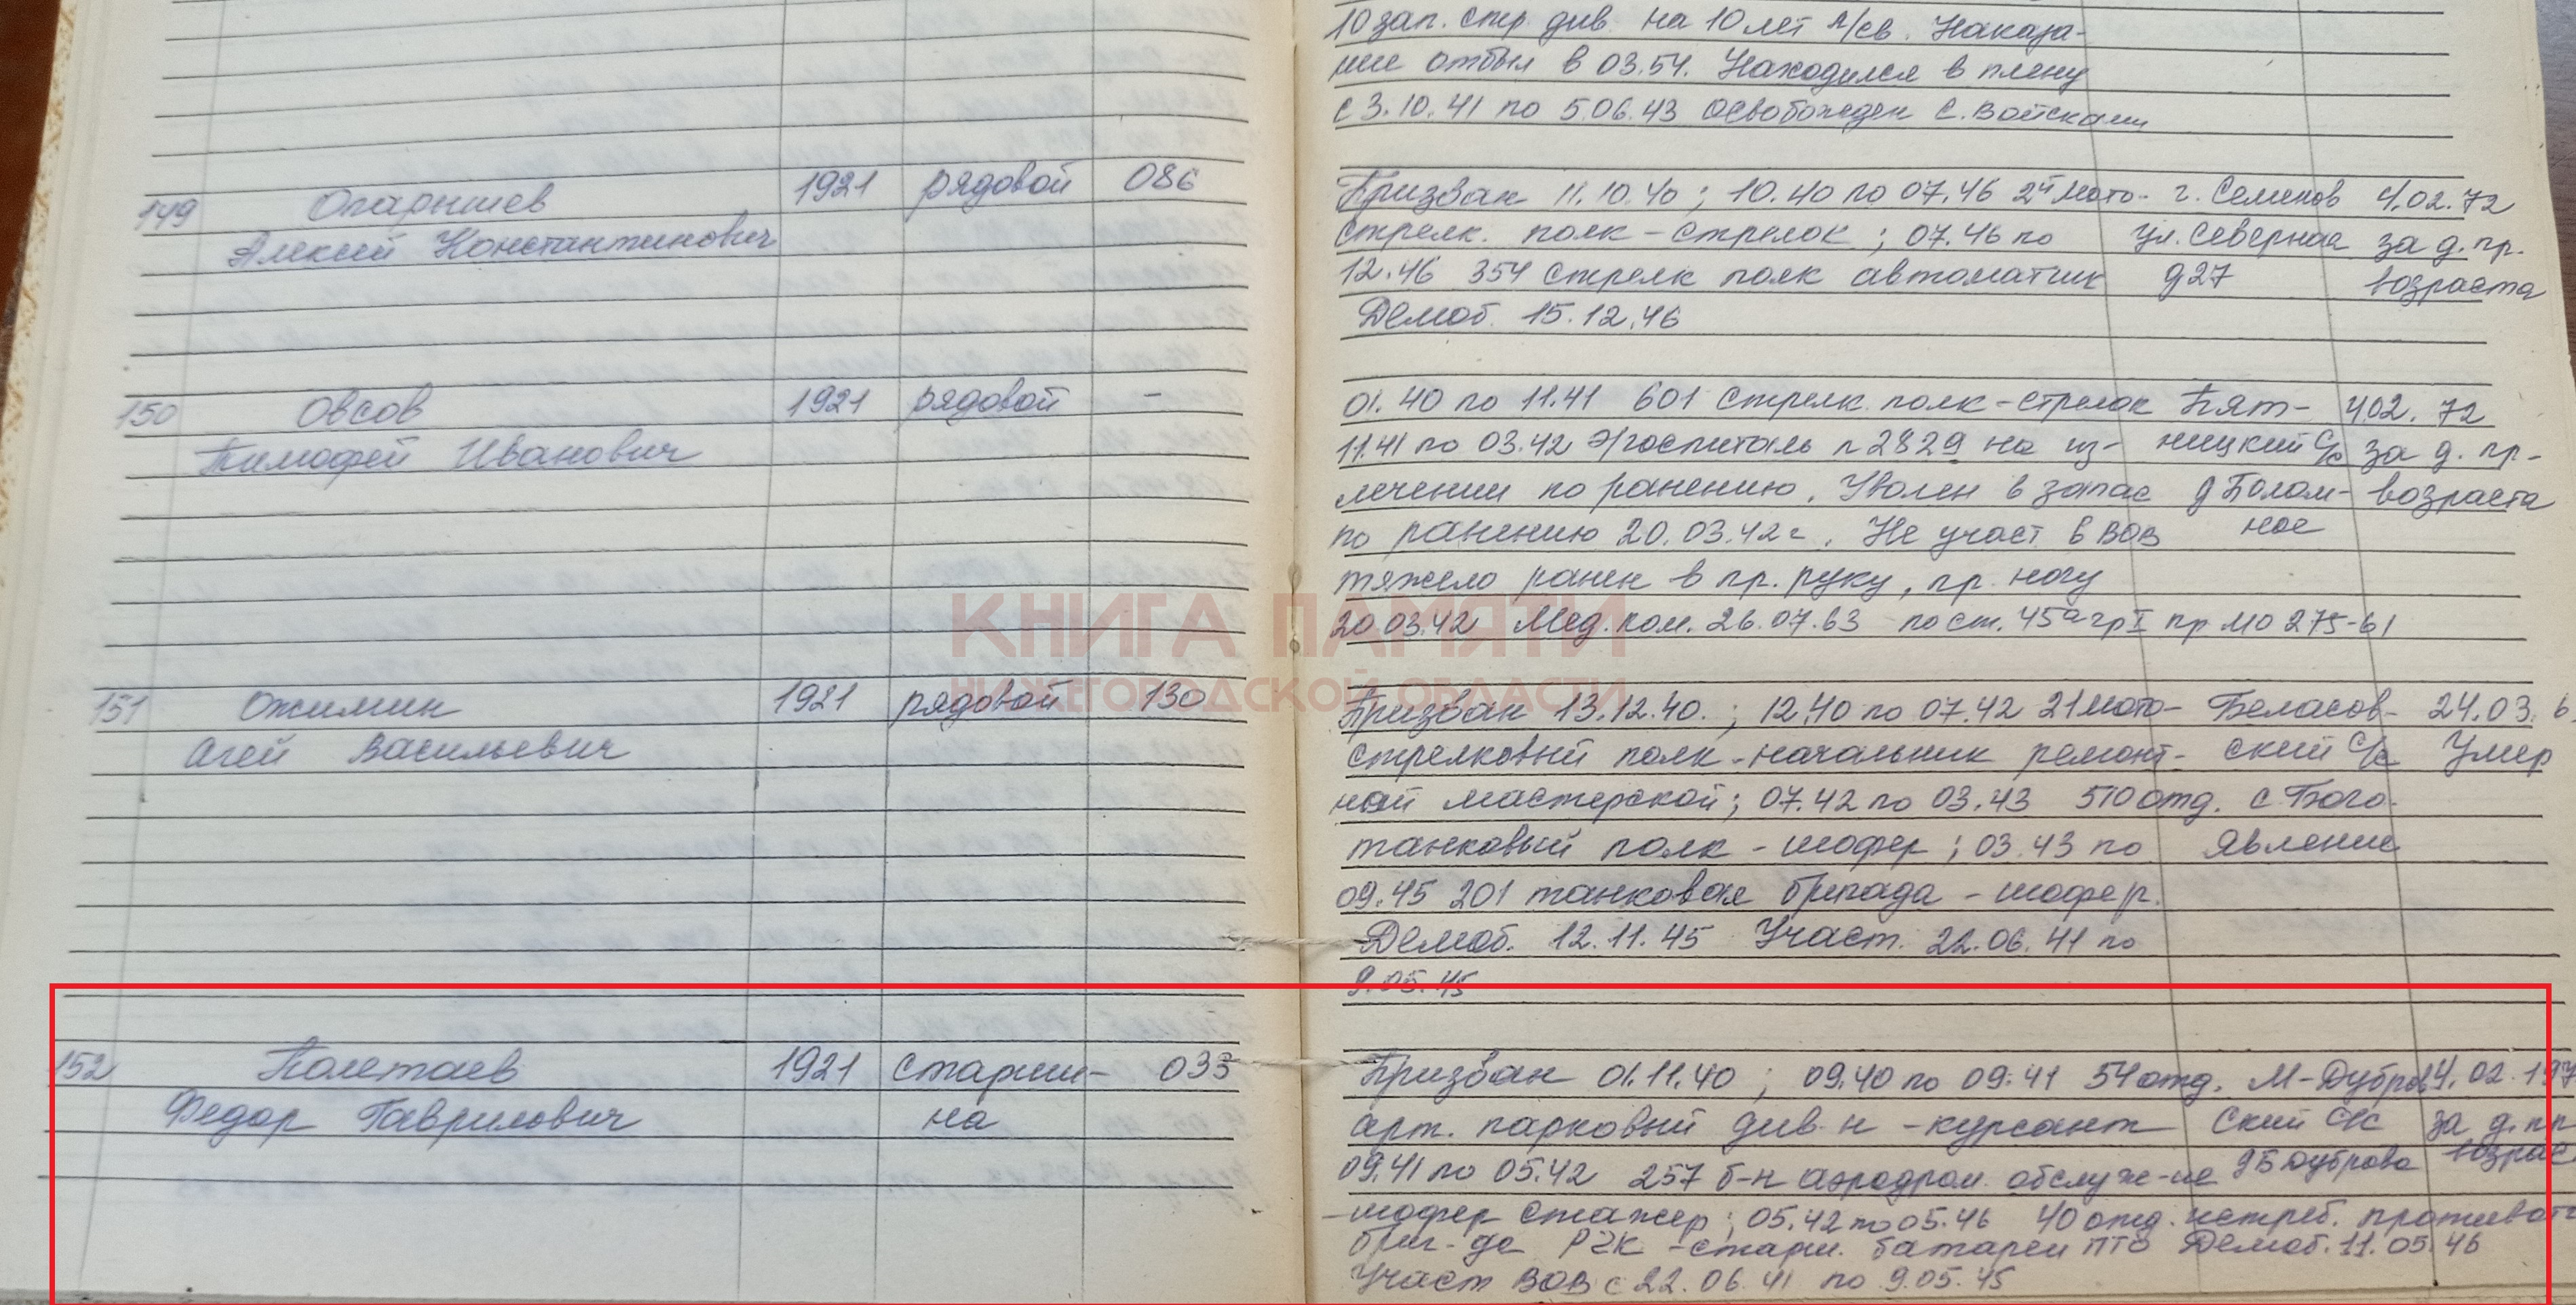 10 зап. стр. див. на 10 лет л/св. Наказа-
ние отбыл в 03.54. Находился в плену
с 3.10.41 по 5.06.43 освобожден С. Войсками
149 Опарышев 1921 рядовой 086
Алексей Константинович
Призван 11.10.40; 10.40 по 07.46 2й мото- г. Семенов 4.02.72
стрелк. полк - стрелок; 07.46 по ул. Северная за д. пр.
12.46 354 стрелк полк автоматчик д 27 возраста
Демоб. 15.12.46
150 Овсов 1921 рядовой -
Тимофей Иванович
01.40 по 11.41 601 стрелк. полк - стрелок Пят- 4.02.72
11.41 по 03.42 Э/госпиталь п 2829 на из- ницкий с/с за д. пр-
лечении по ранению. Уволен в запас д Полом- возраста
по ранению 20.03.42 г. Не участ в ВОВ ное
тяжело ранен в пр. руку, пр. ногу
20.03.42 Мед. ком. 26.07.63 по ст. 45а гр I пр МО 275-61
КНИГА ПАМЯТИ
НИЖЕГОРОДСКОЙ ОБЛАСТИ
151 Ожимин 1921 рядовой 130
Агей Васильевич
Призван 13.12.40.; 12.40 по 07.42 21 мото- Беласов- 24.03. 6
стрелковый полк - начальник ремонт- ский с/с Умер
ной мастерской; 07.42 по 03.43 510 отд. с. Бого-
танковый полк - шофер; 03.43 по явление
09.45 201 танковая бригада - шофер.
Демоб. 12.11.45 Участ. 22.06.41 по
9.05.45
152 Полетаев 1921 старши- 033
Федор Гаврилович на
Призван 01.11.40; 09.40 по 09.41 54 отд. М-Дубров 4.02.197
арт. парковый див-н - курсант ский с/с за д. пр
09.41 по 05.42 257 б-н аэродром. обслуж-ие д Б Дуброва возрас
- шофер стажер; 05.42 по 05.46 40 отд. истреб. противота
бриг-да РГК - старш. батареи ПТО Демоб. 11.05.46
Участ ВОВ с 22.06.41 по 9.05.45